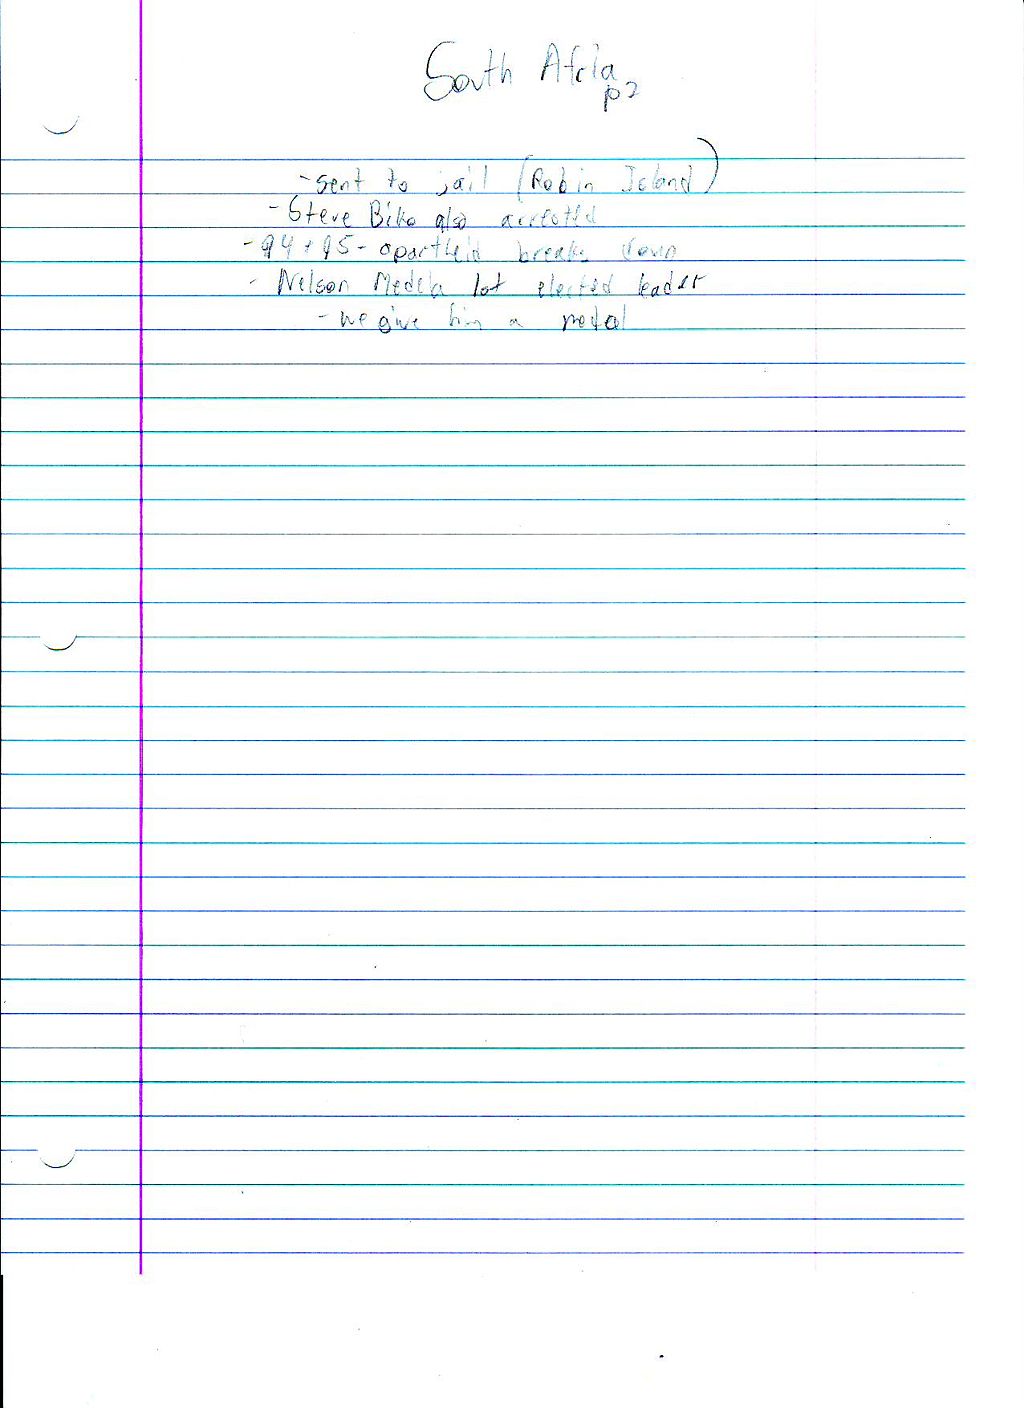 South Afria
p2
-sent to jail (Robin Island)
-Steve Biko also arrested
-94+95-apartheid breaks down
- Nelson Medela 1st elected leader
-we give him a medal